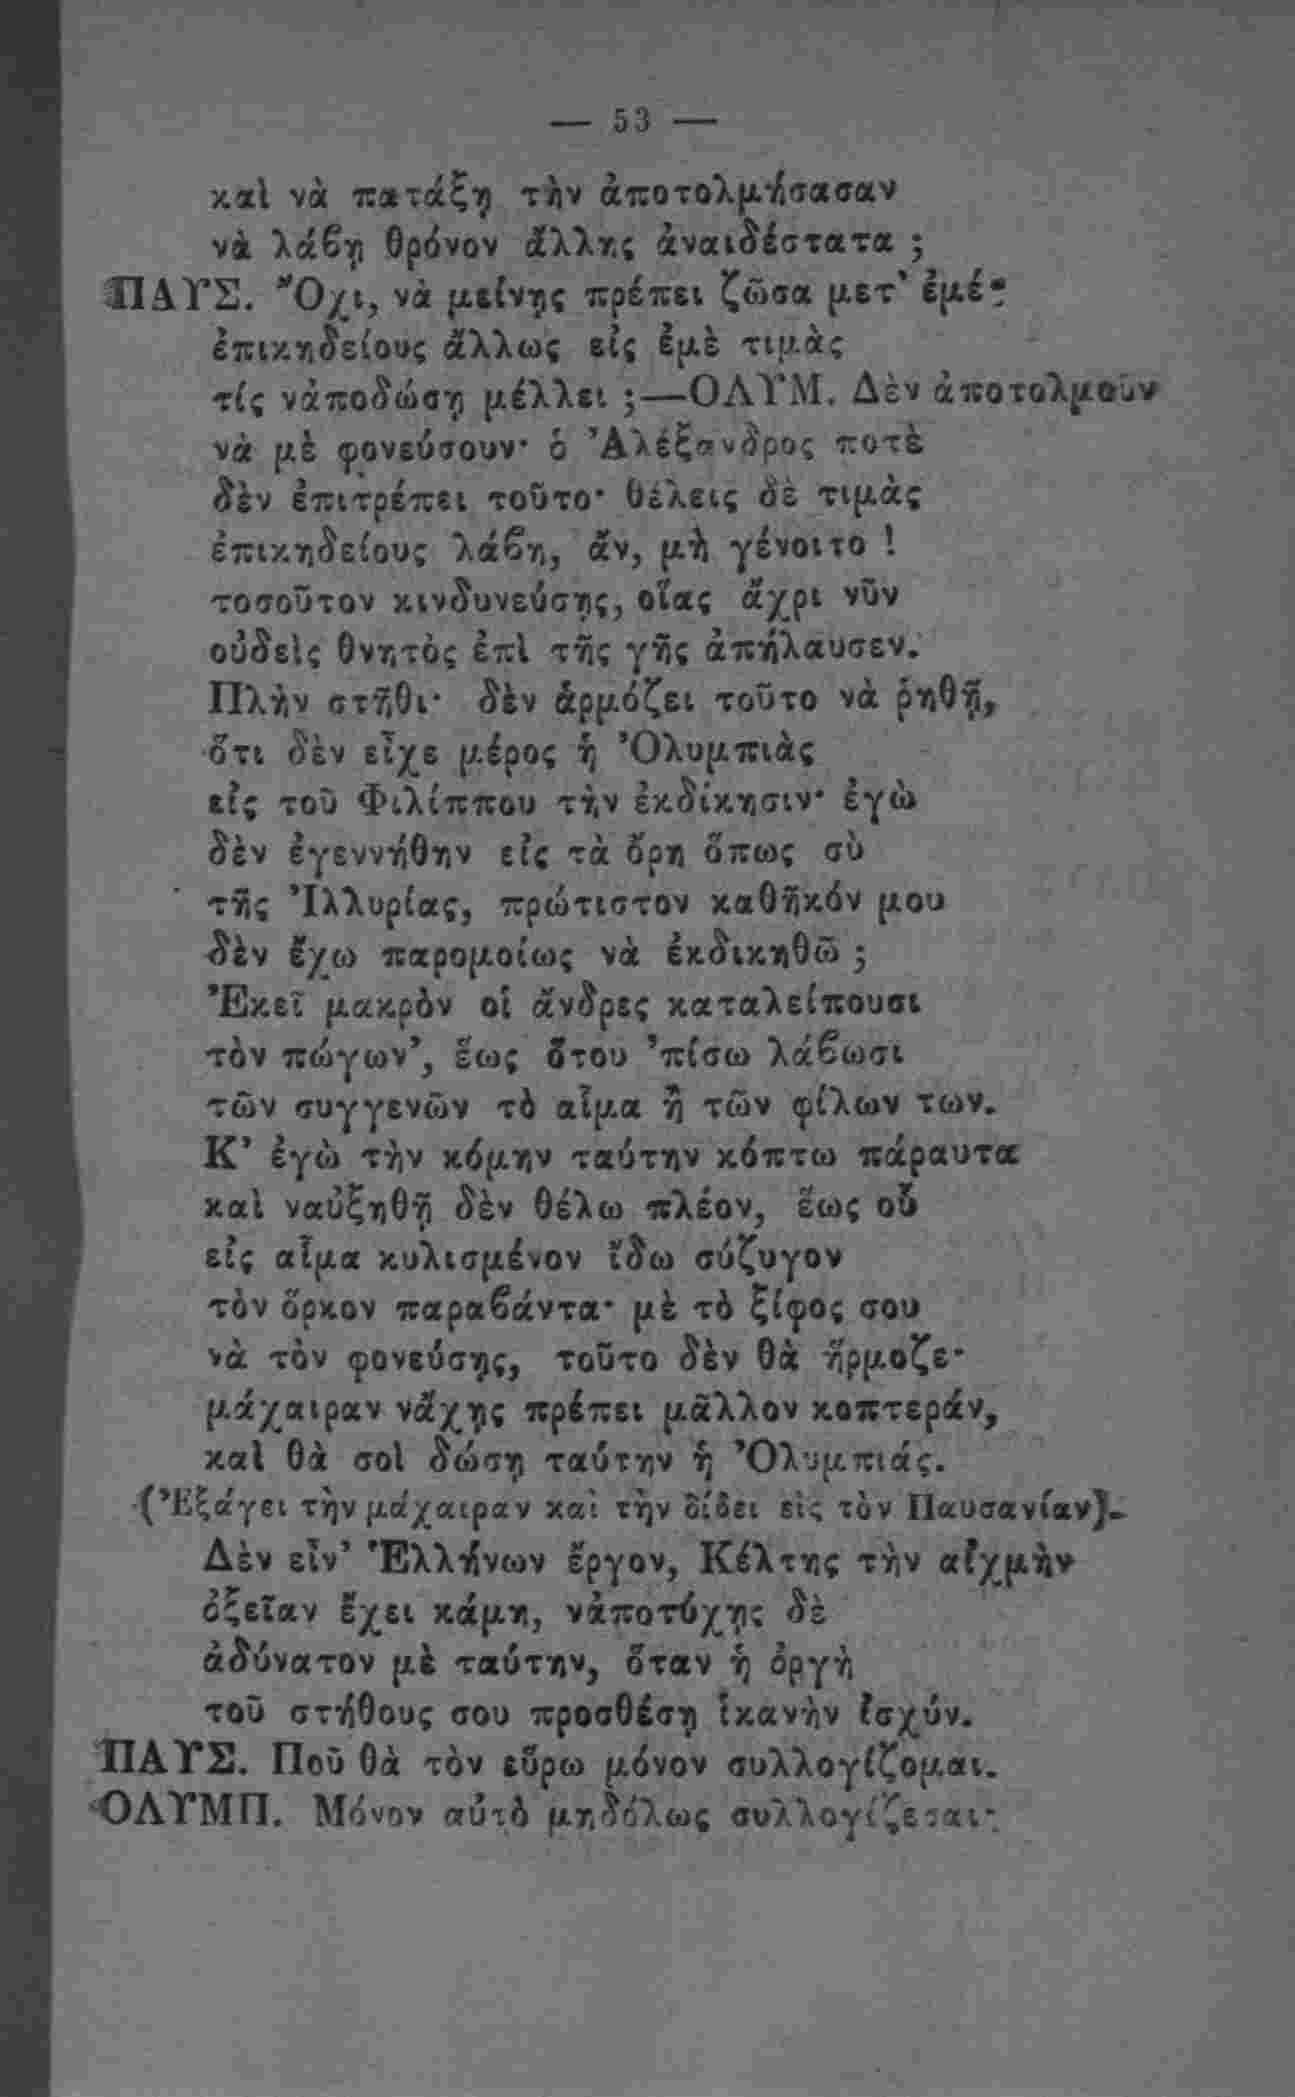 — 53 —
καὶ νὰ πατάξῃ τὴν ἀποτολμήσασαν
νὰ λάβῃ θρόνον ἄλλης ἀναιδέστατα ;
ΠΑΥΣ. Ὄχι, νὰ μείνῃς πρέπει ζῶσα μετ' ἐμέ·
ἐπικηδείους ἄλλως εἰς ἐμὲ τιμὰς
τίς νἀποδώσῃ μέλλει ;—ΟΛΥΜ. Δὲν ἀποτολμοῦν
νὰ μὲ φονεύσουν· ὁ Ἀλέξανδρος ποτὲ
δὲν ἐπιτρέπει τοῦτο· θέλεις δὲ τιμὰς
ἐπικηδείους λάβῃ, ἄν, μὴ γένοιτο !
τοσοῦτον κινδυνεύσῃς, οἵας ἄχρι νῦν
οὐδεὶς θνητὸς ἐπὶ τῆς γῆς ἀπήλαυσεν.
Πλὴν στῆθι· δὲν ἁρμόζει τοῦτο νὰ ῥηθῇ,
ὅτι δὲν εἶχε μέρος ἡ Ὀλυμπιὰς
εἰς τοῦ Φιλίππου τὴν ἐκδίκησιν· ἐγὼ
δὲν ἐγεννήθην εἰς τὰ ὄρη ὅπως σὺ
τῆς Ἰλλυρίας, πρώτιστον καθῆκόν μου
δὲν ἔχω παρομοίως νὰ ἐκδικηθῶ ;
Ἐκεῖ μακρὸν οἱ ἄνδρες καταλείπουσι
τὸν πώγων', ἕως ὅτου 'πίσω λάβωσι
τῶν συγγενῶν τὸ αἷμα ἢ τῶν φίλων των.
Κ' ἐγὼ τὴν κόμην ταύτην κόπτω πάραυτα
καὶ ναὐξηθῇ δὲν θέλω πλέον, ἕως οὗ
εἰς αἷμα κυλισμένον ἴδω σύζυγον
τὸν ὅρκον παραβάντα· μὲ τὸ ξίφος σου
νὰ τὸν φονεύσῃς, τοῦτο δὲν θὰ ἥρμοζε·
μάχαιραν νἄχῃς πρέπει μᾶλλον κοπτεράν,
καὶ θὰ σοὶ δώσῃ ταύτην ἡ Ὀλυμπιάς.
(Ἐξάγει τὴν μάχαιραν καὶ τὴν δίδει εἰς τὸν Παυσανίαν).
Δὲν εἶν' Ἑλλήνων ἔργον, Κέλτης τὴν αἰχμὴν
ὀξεῖαν ἔχει κάμῃ, νἀποτύχῃς δὲ
ἀδύνατον μὲ ταύτην, ὅταν ἡ ὀργὴ
τοῦ στήθους σου προσθέσῃ ἱκανὴν ἰσχύν.
ΠΑΥΣ. Ποῦ θὰ τὸν εὕρω μόνον συλλογίζομαι.
ΟΛΥΜΠ. Μόνον αὐτὸ μηδόλως συλλογίζεσαι·